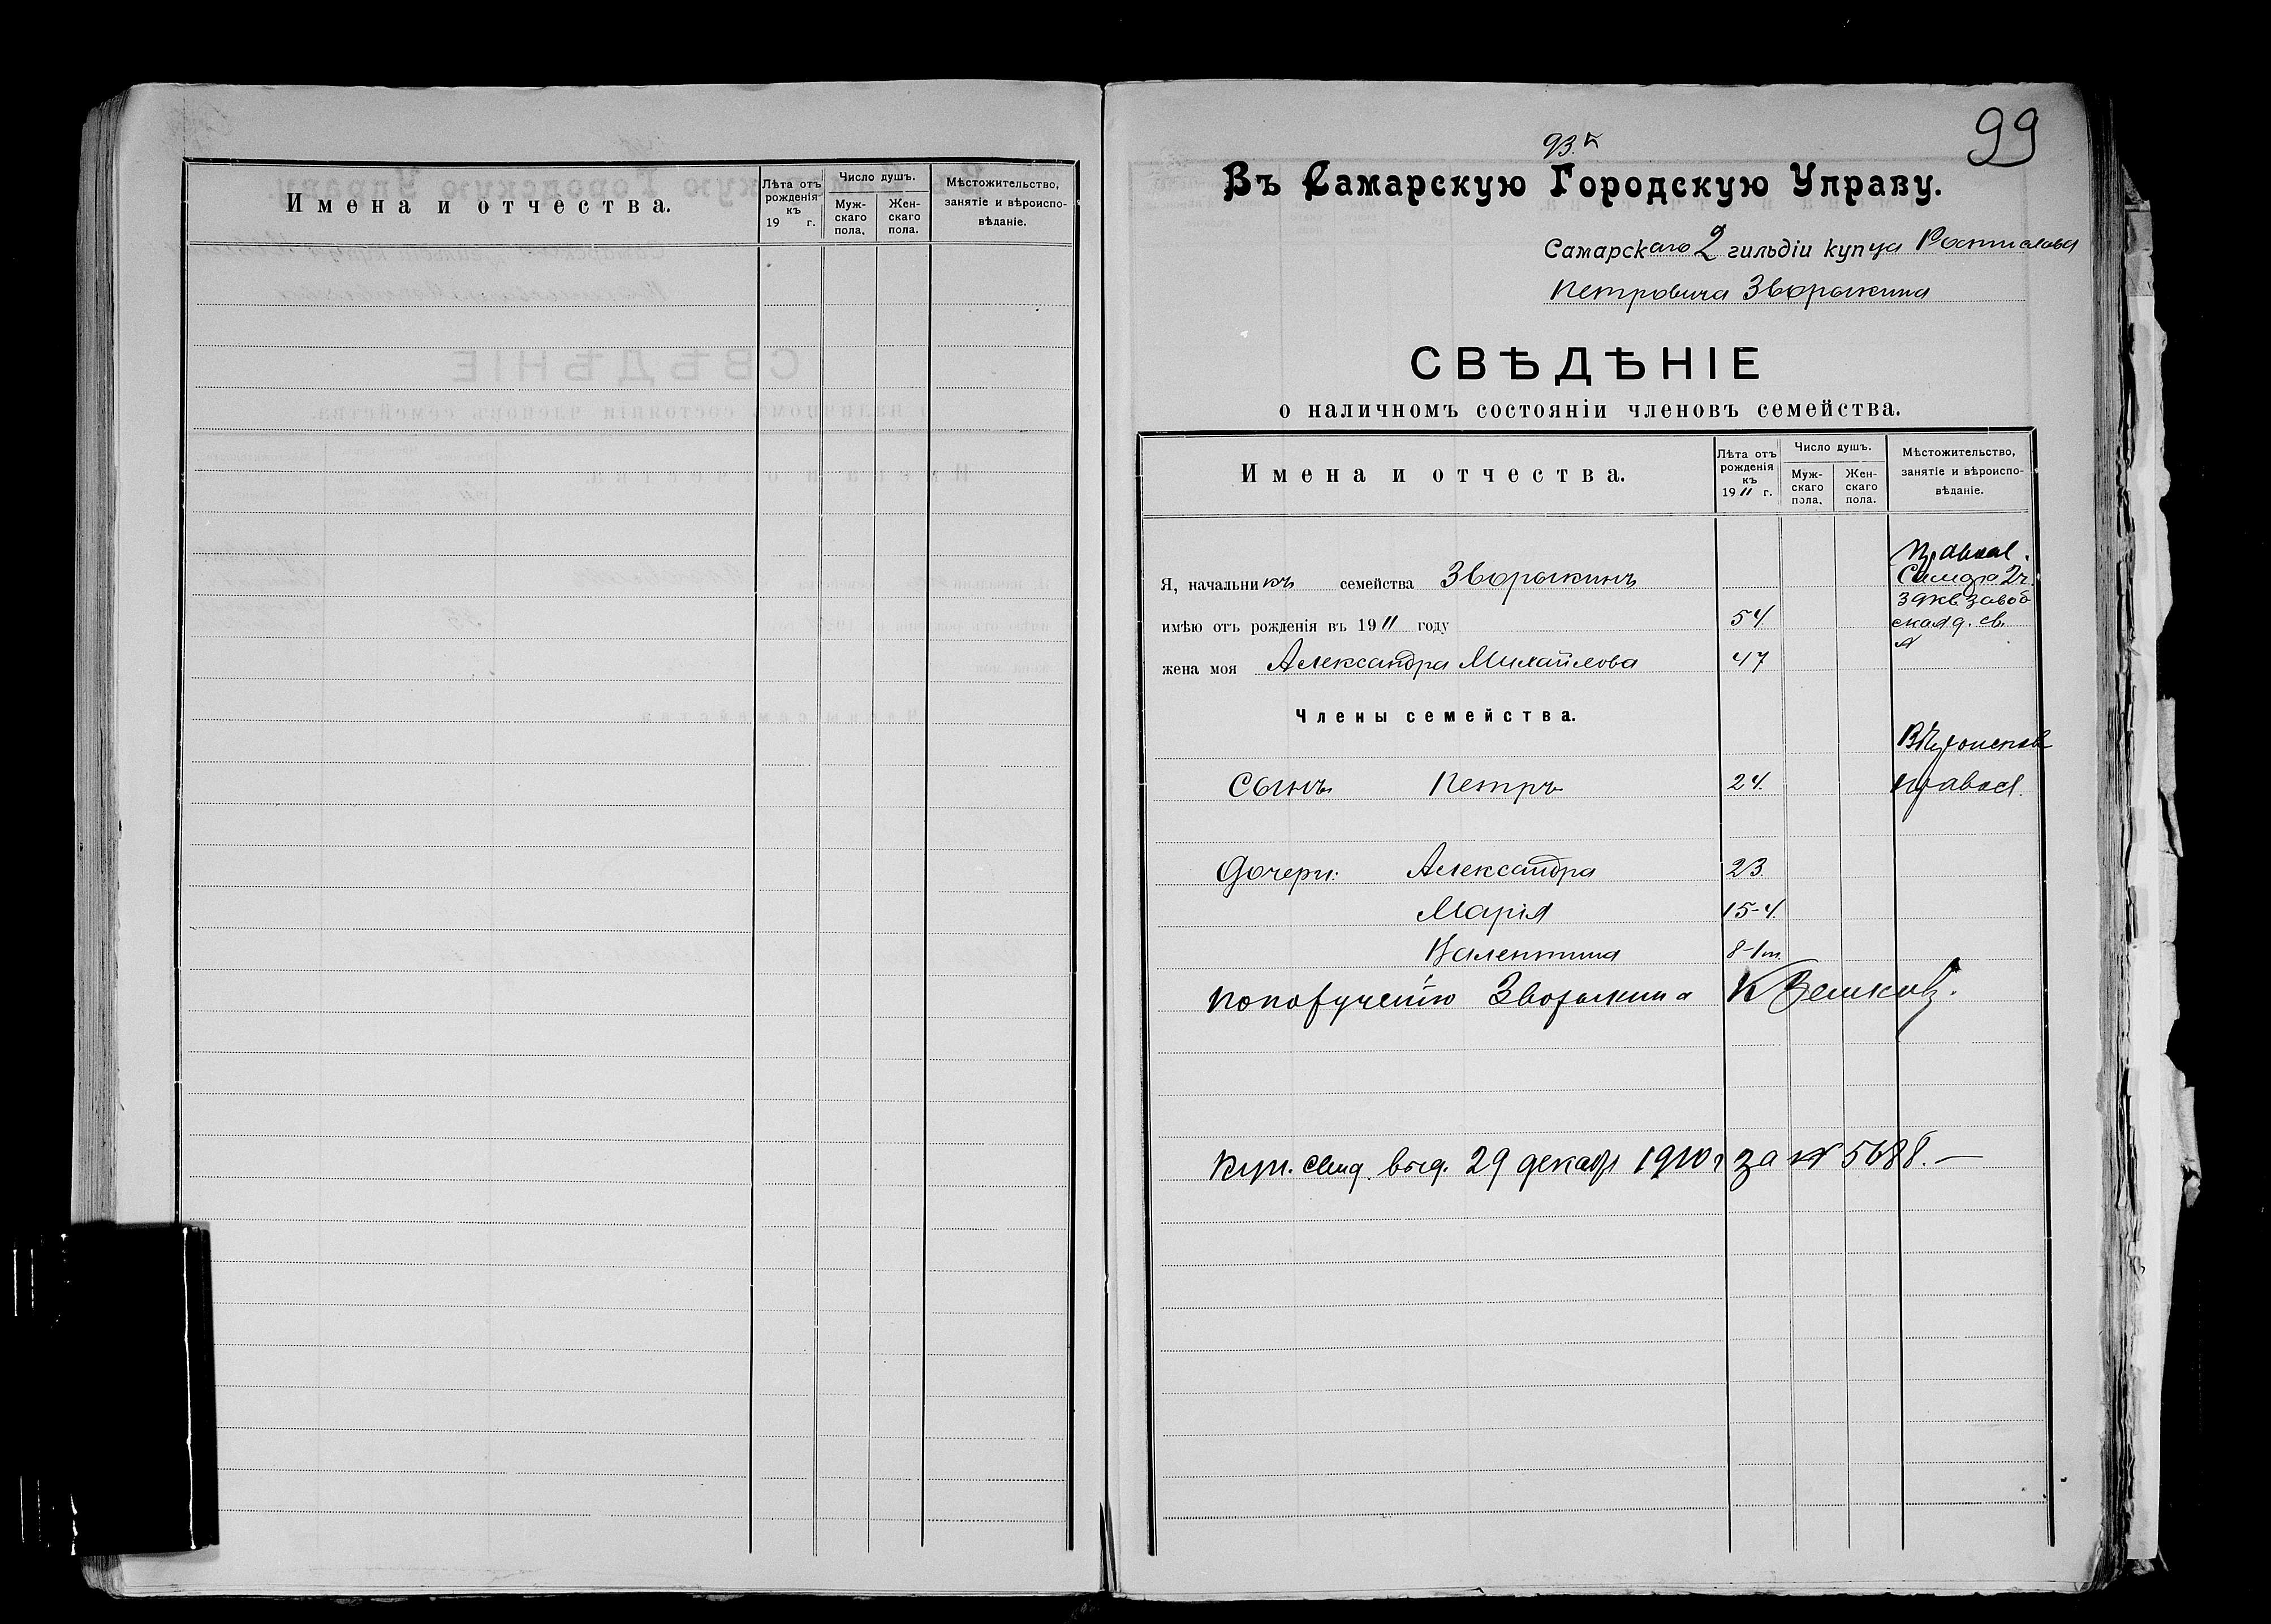 Имена и отчества.
Лѣта отъ рожденія къ 19 г.
Число душъ.
Мужскаго пола.
Женскаго пола.
Мѣстожительство, занятіе и вѣроисповѣданіе.
99
93.
Въ Самарскую Городскую Управу.
Самарскаго 2 гильдіи купца Ростислава
Петровича Зворыкина
СВѢДѢНІЕ
о наличномъ состояніи членовъ семейства.
Имена и отчества.
Лѣта отъ рожденія къ 1911 г.
Число душъ.
Мужскаго пола.
Женскаго пола.
Мѣстожительство, занятіе и вѣроисповѣданіе.
Правосл.
Я, начальникъ семейства Зворыкинъ
Самара 2ч.
имѣю отъ рожденія въ 1911 году 54
жена моя Александра Михайлова 47
Члены семейства.
Сынъ Петръ 24. правосл.
Дочери: Александра 23.
Марія 15-4.
Валентина 8-1
По порученію Зворыкина К
Куп. свид. выд. 29 декабр 1910 г за № 5688.—